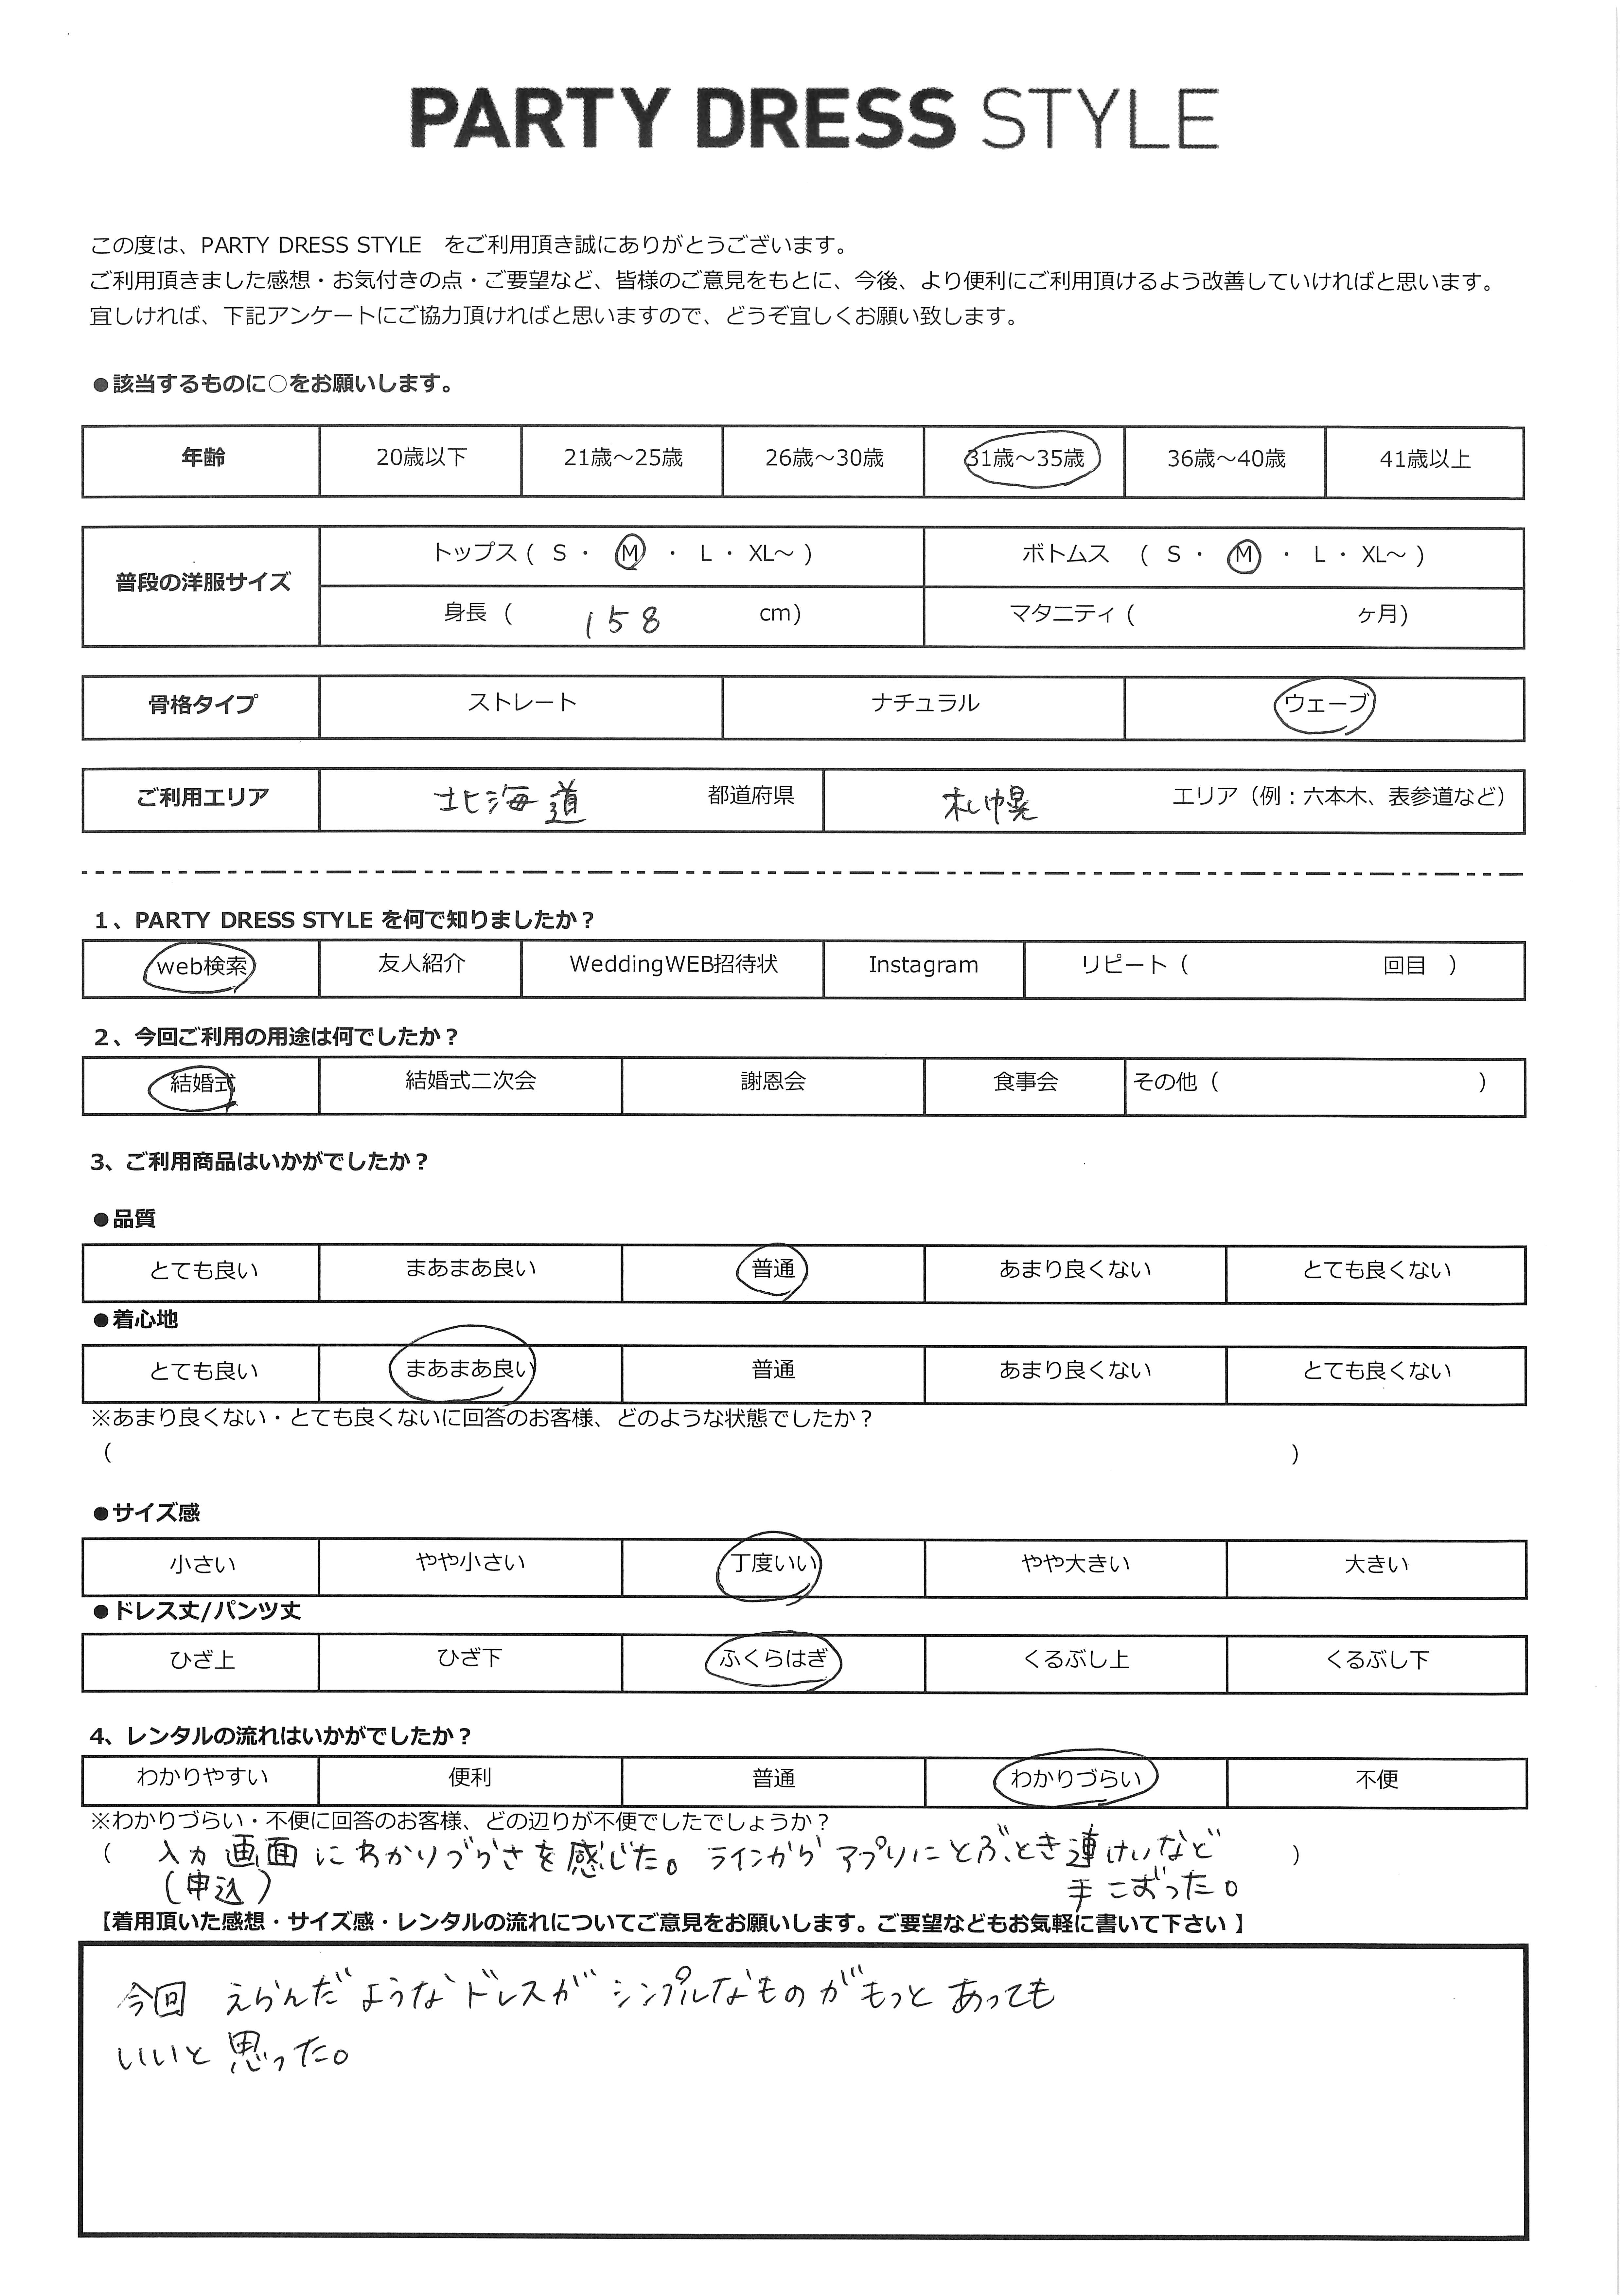 PARTY DRESS STYLE
この度は、PARTY DRESS STYLE をご利用頂き誠にありがとうございます。
ご利用頂きました感想・お気付きの点・ご要望など、皆様のご意見をもとに、今後、より便利にご利用頂けるよう改善していければと思います。
宜しければ、下記アンケートにご協力頂ければと思いますので、どうぞ宜しくお願い致します。
●該当するものに○をお願いします。
年齢 20歳以下 21歳～25歳 26歳～30歳 31歳～35歳 36歳～40歳 41歳以上
普段の洋服サイズ
トップス ( S ・ M ・ L ・ XL～ ) ボトムス ( S ・ M ・ L ・ XL～ )
身長 ( 158 cm) マタニティ ( ヶ月)
骨格タイプ ストレート ナチュラル ウェーブ
ご利用エリア 北海道 都道府県 札幌 エリア（例：六本木、表参道など）
1、PARTY DRESS STYLE を何で知りましたか？
web検索 友人紹介 WeddingWEB招待状 Instagram リピート（ 回目 ）
2、今回ご利用の用途は何でしたか？
結婚式 結婚式二次会 謝恩会 食事会 その他（ ）
3、ご利用商品はいかがでしたか？
●品質
とても良い まあまあ良い 普通 あまり良くない とても良くない
●着心地
とても良い まあまあ良い 普通 あまり良くない とても良くない
※あまり良くない・とても良くないに回答のお客様、どのような状態でしたか？
（ ）
●サイズ感
小さい やや小さい 丁度いい やや大きい 大きい
●ドレス丈/パンツ丈
ひざ上 ひざ下 ふくらはぎ くるぶし上 くるぶし下
4、レンタルの流れはいかがでしたか？
わかりやすい 便利 普通 わかりづらい 不便
※わかりづらい・不便に回答のお客様、どの辺りが不便でしたでしょうか？
（ 入力画面にわかりづらさを感じた。ラインからアプリにとぶとき連けいなど ）
(申込) 手こずった。
【着用頂いた感想・サイズ感・レンタルの流れについてご意見をお願いします。ご要望などもお気軽に書いて下さい 】
今回 えらんだようなドレスが シンプルなものがもっと あっても
いいと思った。